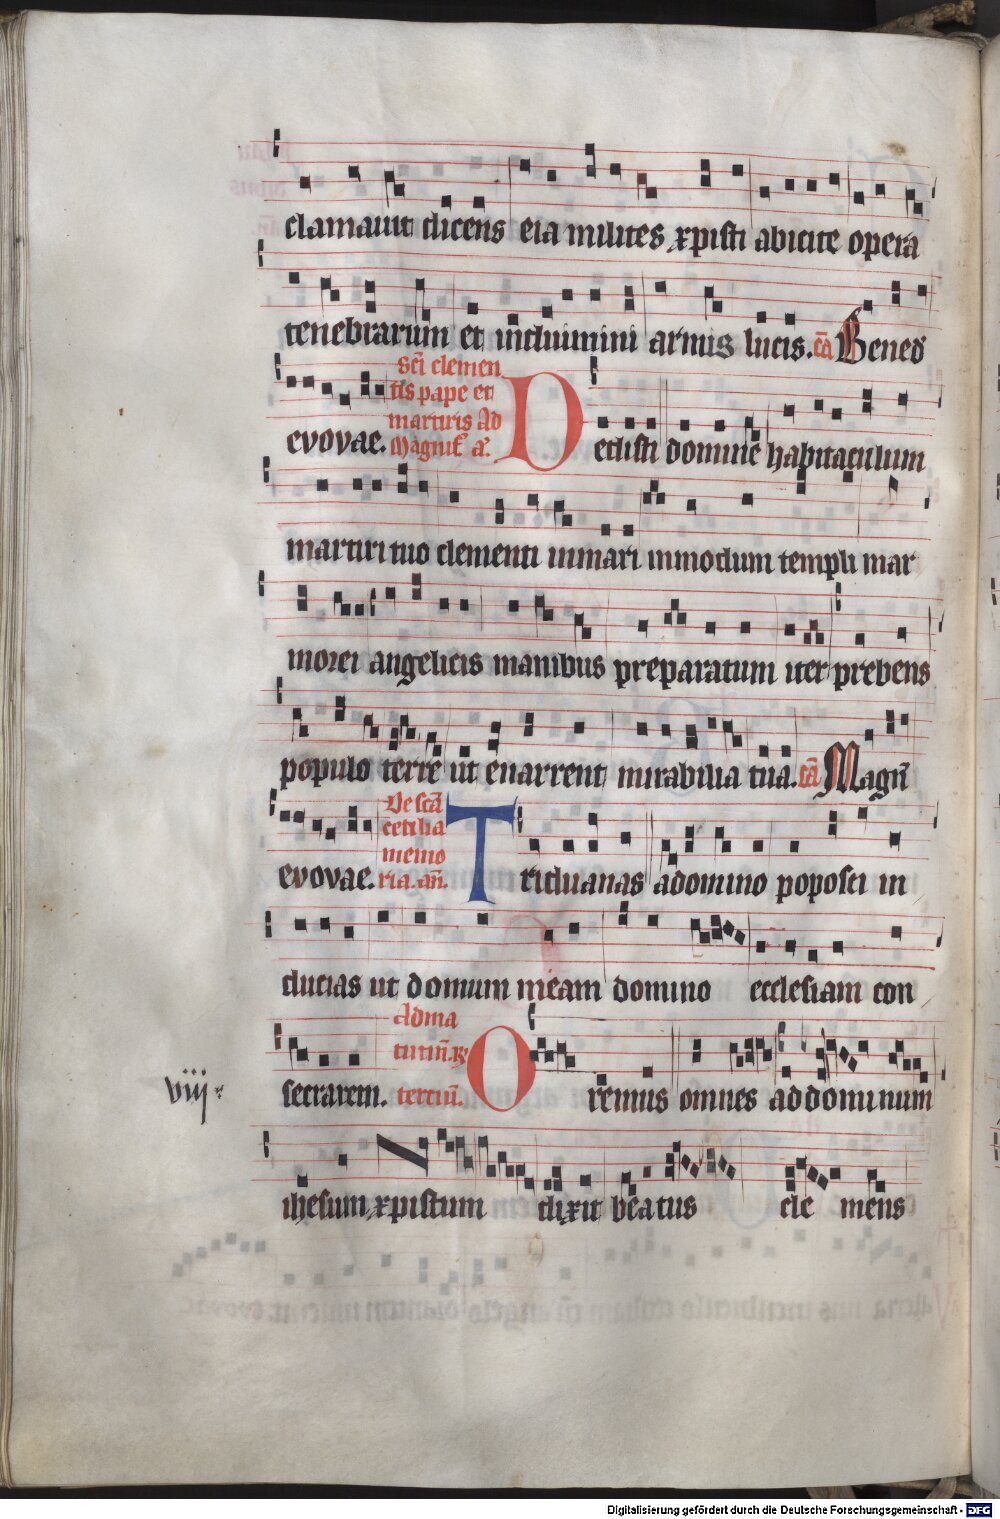 clamauit dicens eia milites xpisti abicite opera
tenebrarum et induimini armis lucis. cā Bened
evovae. Sci clemen
tis pape et
martiris Ad
Magnif. a.
Dedisti domine habitaculum
martiri tuo clementi in mari in modum templi mar
morei angelicis manibus preparatum iter prebens
populo terre ut enarrent mirabilia tua. cā Magn̄
evovae. De scā
cecilia
memo
ria. an̄.
Triduanas a domino poposci in
ducias ut domum meam domino ecclesiam con
secrarem. Ad ma
tutin̄. R
terciū.
viij
Oremus omnes ad dominum
ihesum xpistum dixit beatus cle mens
Digitalisierung gefördert durch die Deutsche Forschungsgemeinschaft - DFG